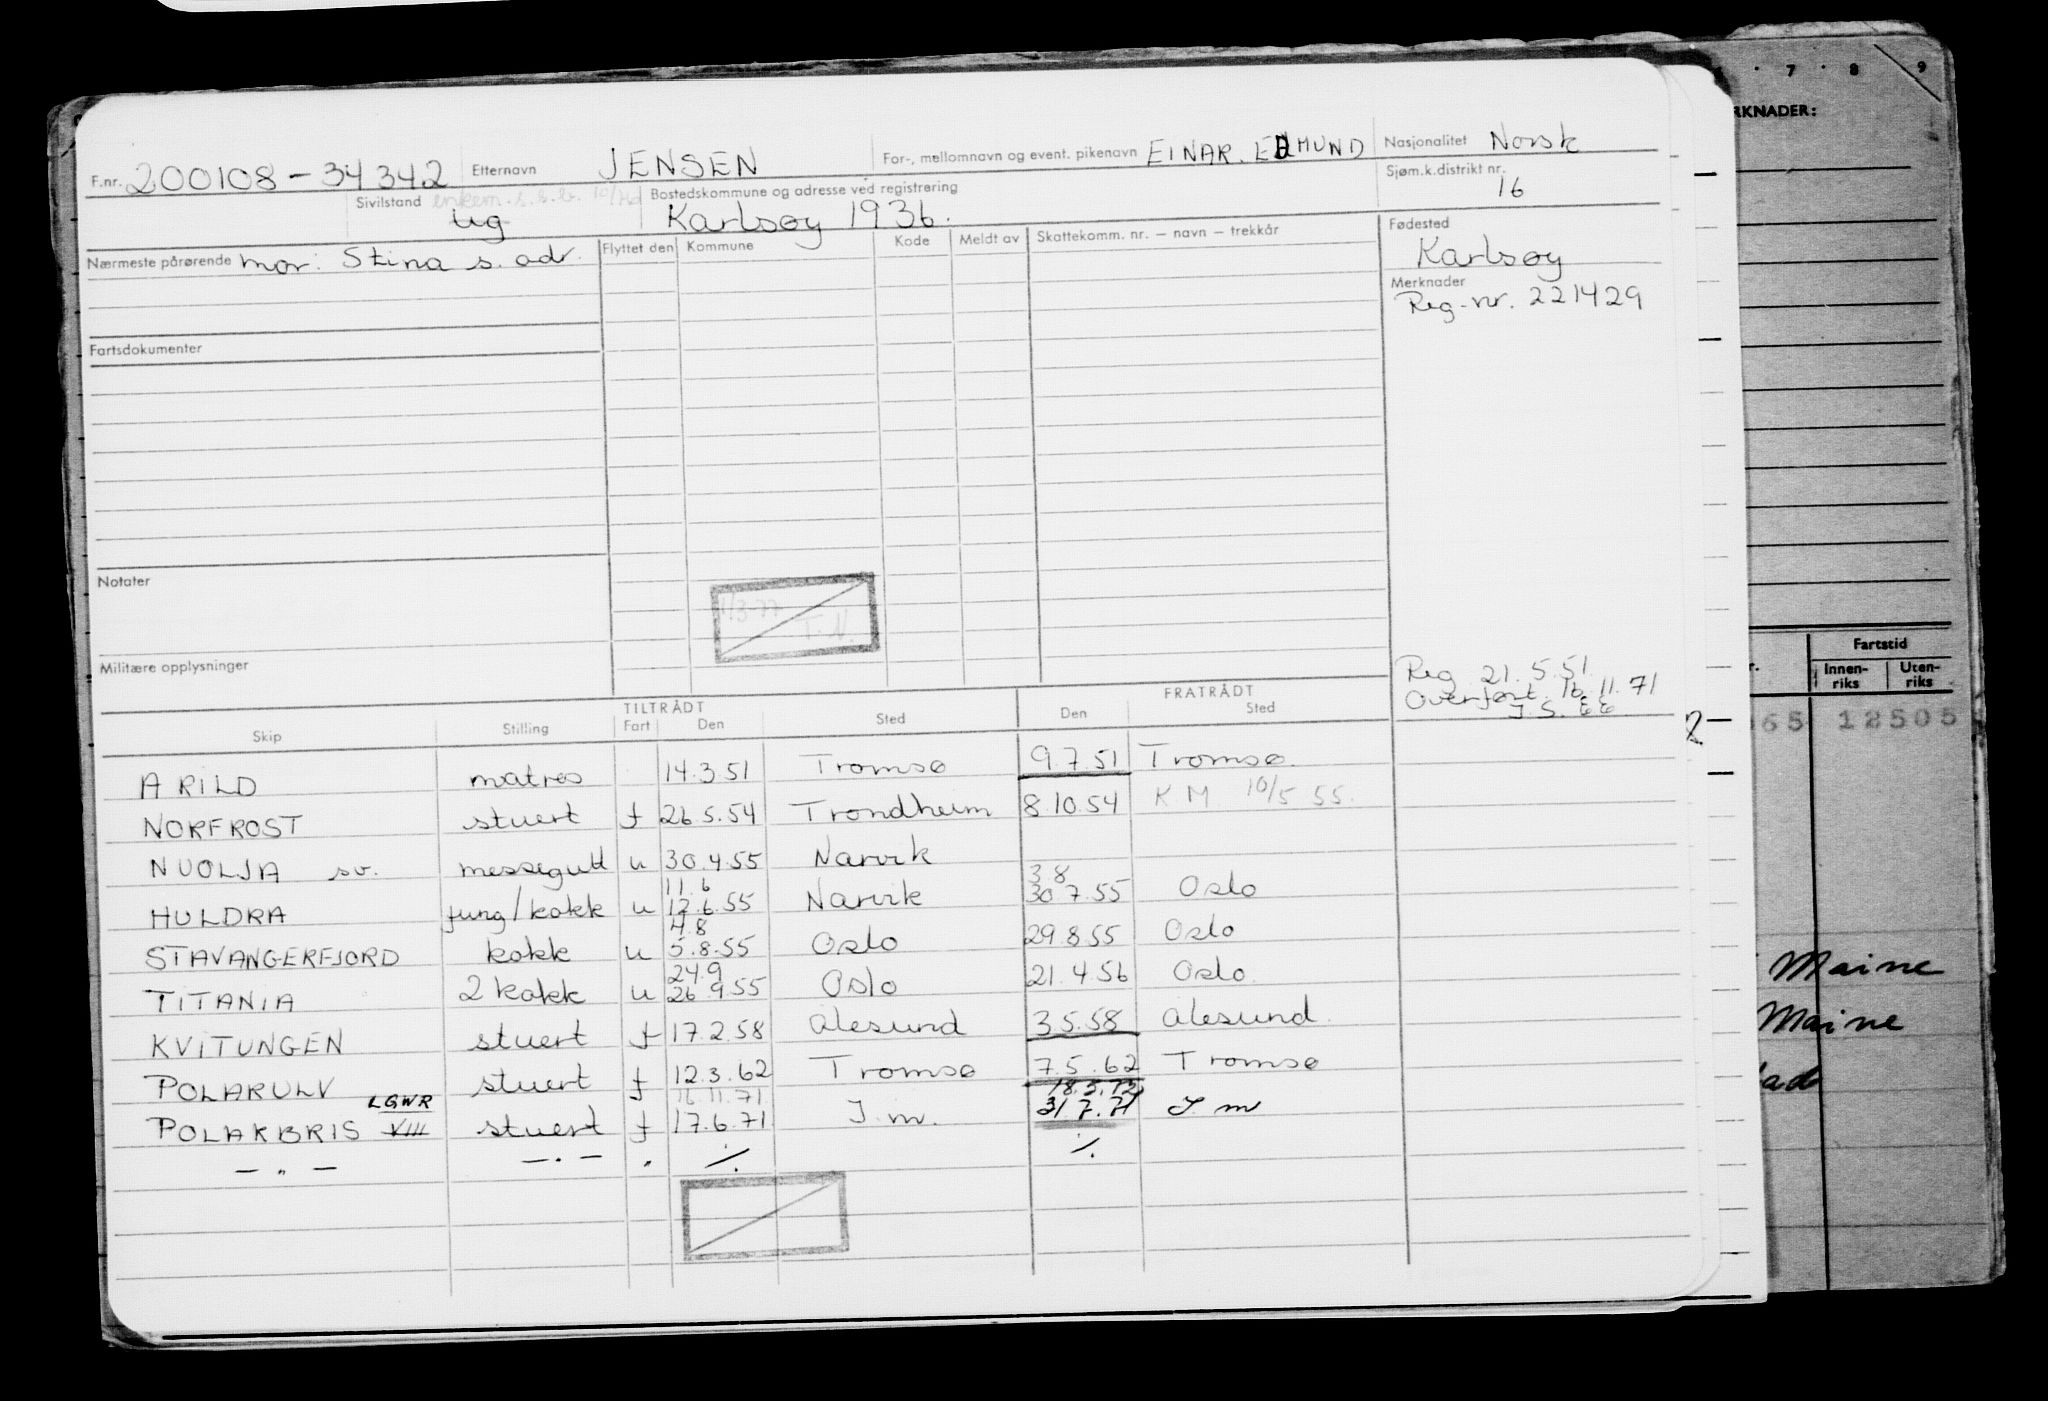 7 · 8 9
RKNADER:
F.nr. 200108-34342 Etternavn JENSEN For-, mellomnavn og event. pikenavn EINAR. EDMUND Nasjonalitet Norsk
Sivilstand ug Bostedskommune og adresse ved registrering Karlsøy 1936. Sjøm.k.distrikt nr. 16
Nærmeste pårørende mor: Stina s. adr. Flyttet den Kommune Kode Meldt av Skattekomm. nr. – navn – trekkår Fødested
Karlsøy
Merknader
Reg-nr. 221429
Fartsdokumenter
Notater
1/3-77
T. N.
Militære opplysninger
Reg 21. 5.51
Overført. 16.11.71
Fartstid
Innen-riks Uten-riks
65 12505
TILTRÅDT FRATRÅDT
Skip Stilling Fart Den Sted Den Sted
ARILD matros 14.3.51 Tromsø 9.7.51 Tromsø.
NORFROST stuert f 26.5.54 Trondheim 8.10.54 K M. 10/5 55.
NUOLJA sv. messegutt u 30.4.55 Narvik
11.6 3 8
HULDRA jung/kokk u 12.6.55 Narvik 30 7.55 Oslo
4.8
STAVANGERFJORD kokk u 5.8.55 Oslo 29.8.55 Oslo
24.9
TITANIA 2 kokk u 26.9.55 Oslo 21.4.56 Oslo.
KVITUNGEN stuert f 17.2.58 Ålesund 3.5.58 Ålesund.
POLARULV stuert f 12.3.62 Tromsø 7.5.62 Tromsø
LGWR 16.11.71 18.5.72
POLARBRIS VIII stuert f 17.6.71 I.m. 31.7.71 I m
— " — — . — " ./. ./.
Maine
Maine
2